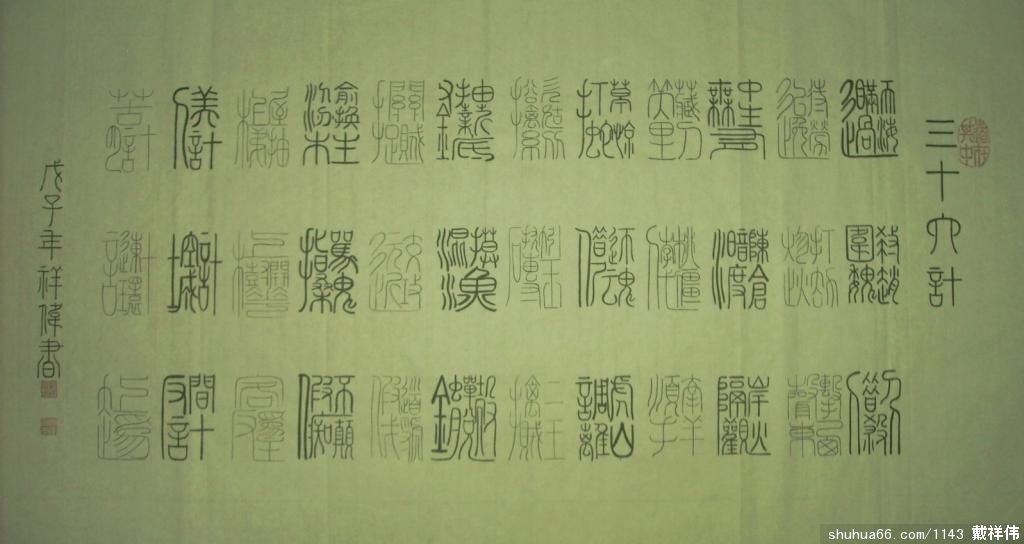 三十六計
瞞天過海
圍魏救趙
借刀殺人
以逸待勞
趁火打劫
聲東擊西
無中生有
暗渡陳倉
隔岸觀火
笑里藏刀
李代桃僵
順手牽羊
打草驚蛇
借屍還魂
調虎離山
欲擒故縱
拋磚引玉
擒賊擒王
釜底抽薪
混水摸魚
金蟬脫殼
關門捉賊
遠交近攻
假道伐虢
偷梁換柱
指桑罵槐
假痴不癲
上屋抽梯
樹上開花
反客為主
美人計
空城計
反間計
苦肉計
連環計
走為上
戊子年祥偉書
shuhua66.com/1143 戴祥伟